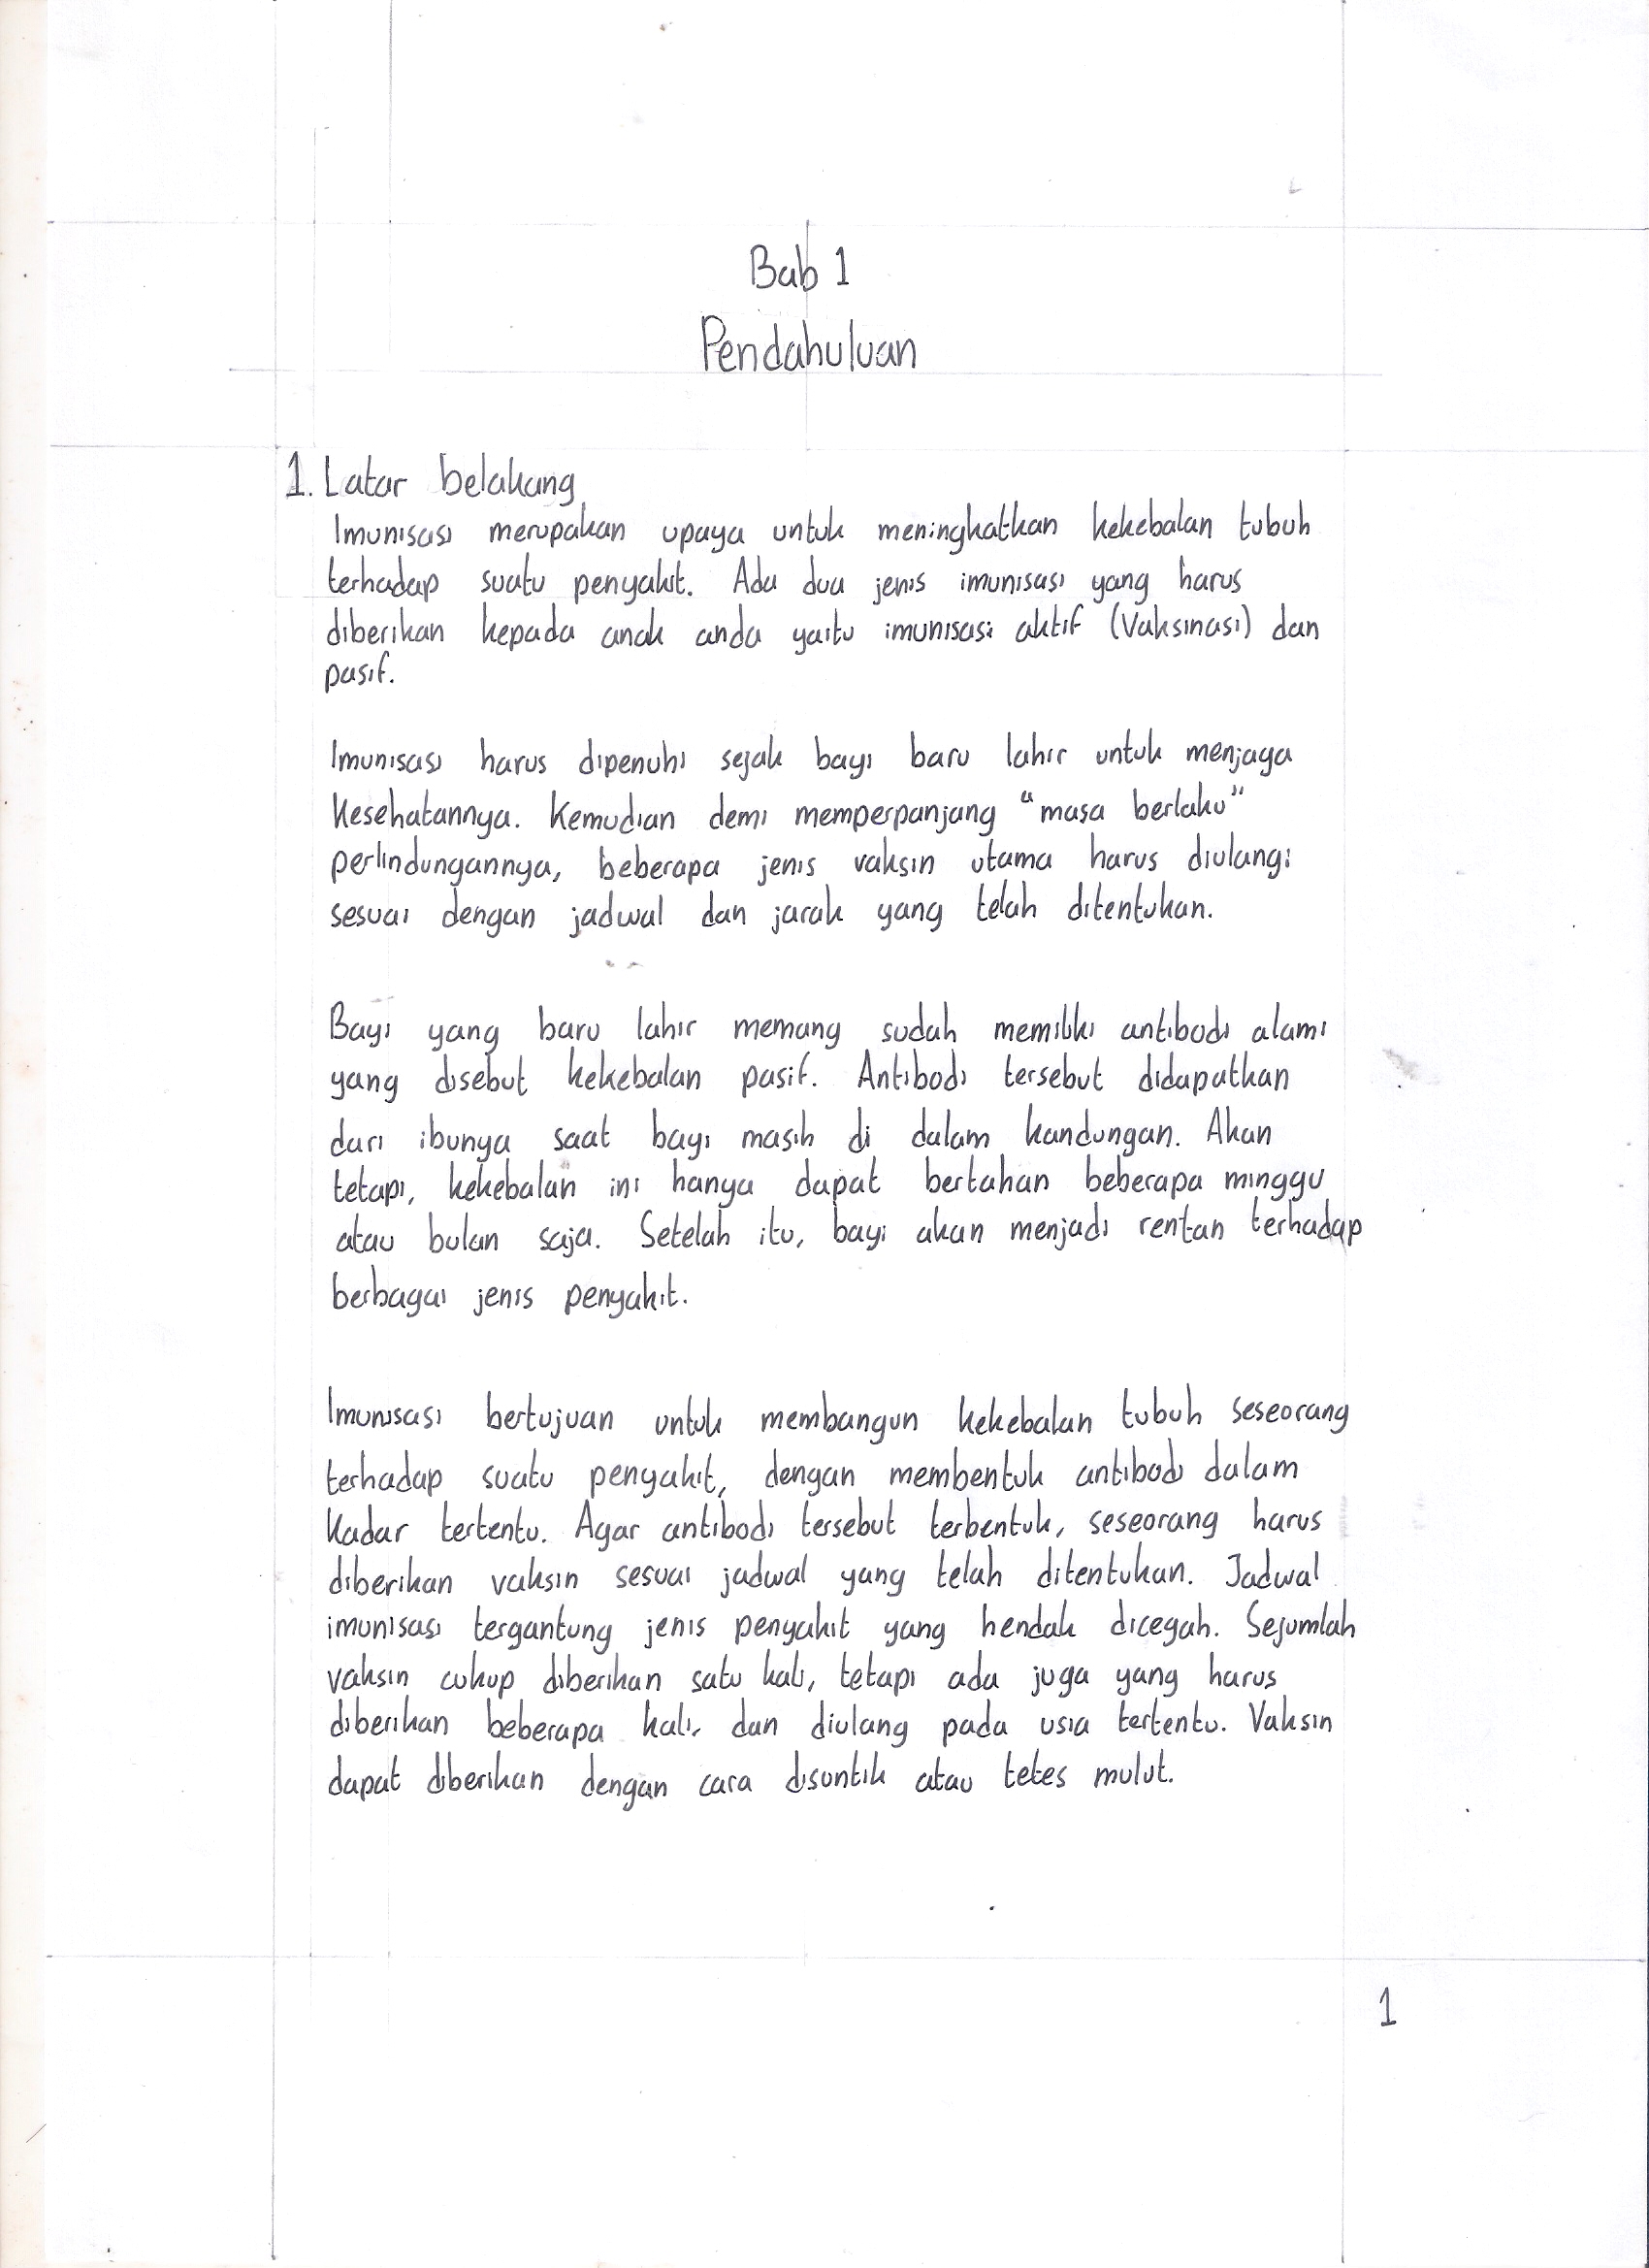 Bab 1
Pendahuluan
1. Latar belakang
Imunisasi merupakan upaya untuk meningkatkan kekebalan tubuh
terhadap suatu penyakit. Ada dua jenis imunisasi yang harus
diberikan kepada anak anda yaitu imunisasi aktif (Vaksinasi) dan
pasif.
Imunisasi harus dipenuhi sejak bayi baru lahir untuk menjaga
Kesehatannya. Kemudian demi memperpanjang "masa berlaku"
perlindungannya, beberapa jenis vaksin utama harus diulangi
sesuai dengan jadwal dan jarak yang telah ditentukan.
Bayi yang baru lahir memang sudah memiliki antibodi alami
yang disebut kekebalan pasif. Antibodi tersebut didapatkan
dari ibunya saat bayi masih di dalam kandungan. Akan
tetapi, kekebalan ini hanya dapat bertahan beberapa minggu
atau bulan saja. Setelah itu, bayi akan menjadi rentan terhadap
berbagai jenis penyakit.
Imunisasi bertujuan untuk membangun kekebalan tubuh seseorang
terhadap suatu penyakit, dengan membentuk antibodi dalam
Kadar tertentu. Agar antibodi tersebut terbentuk, seseorang harus
diberikan vaksin sesuai jadwal yang telah ditentukan. Jadwal
imunisasi tergantung jenis penyakit yang hendak dicegah. Sejumlah
vaksin cukup diberikan satu kali, tetapi ada juga yang harus
diberikan beberapa kali, dan diulang pada usia tertentu. Vaksin
dapat diberikan dengan cara disuntik atau tetes mulut.
1